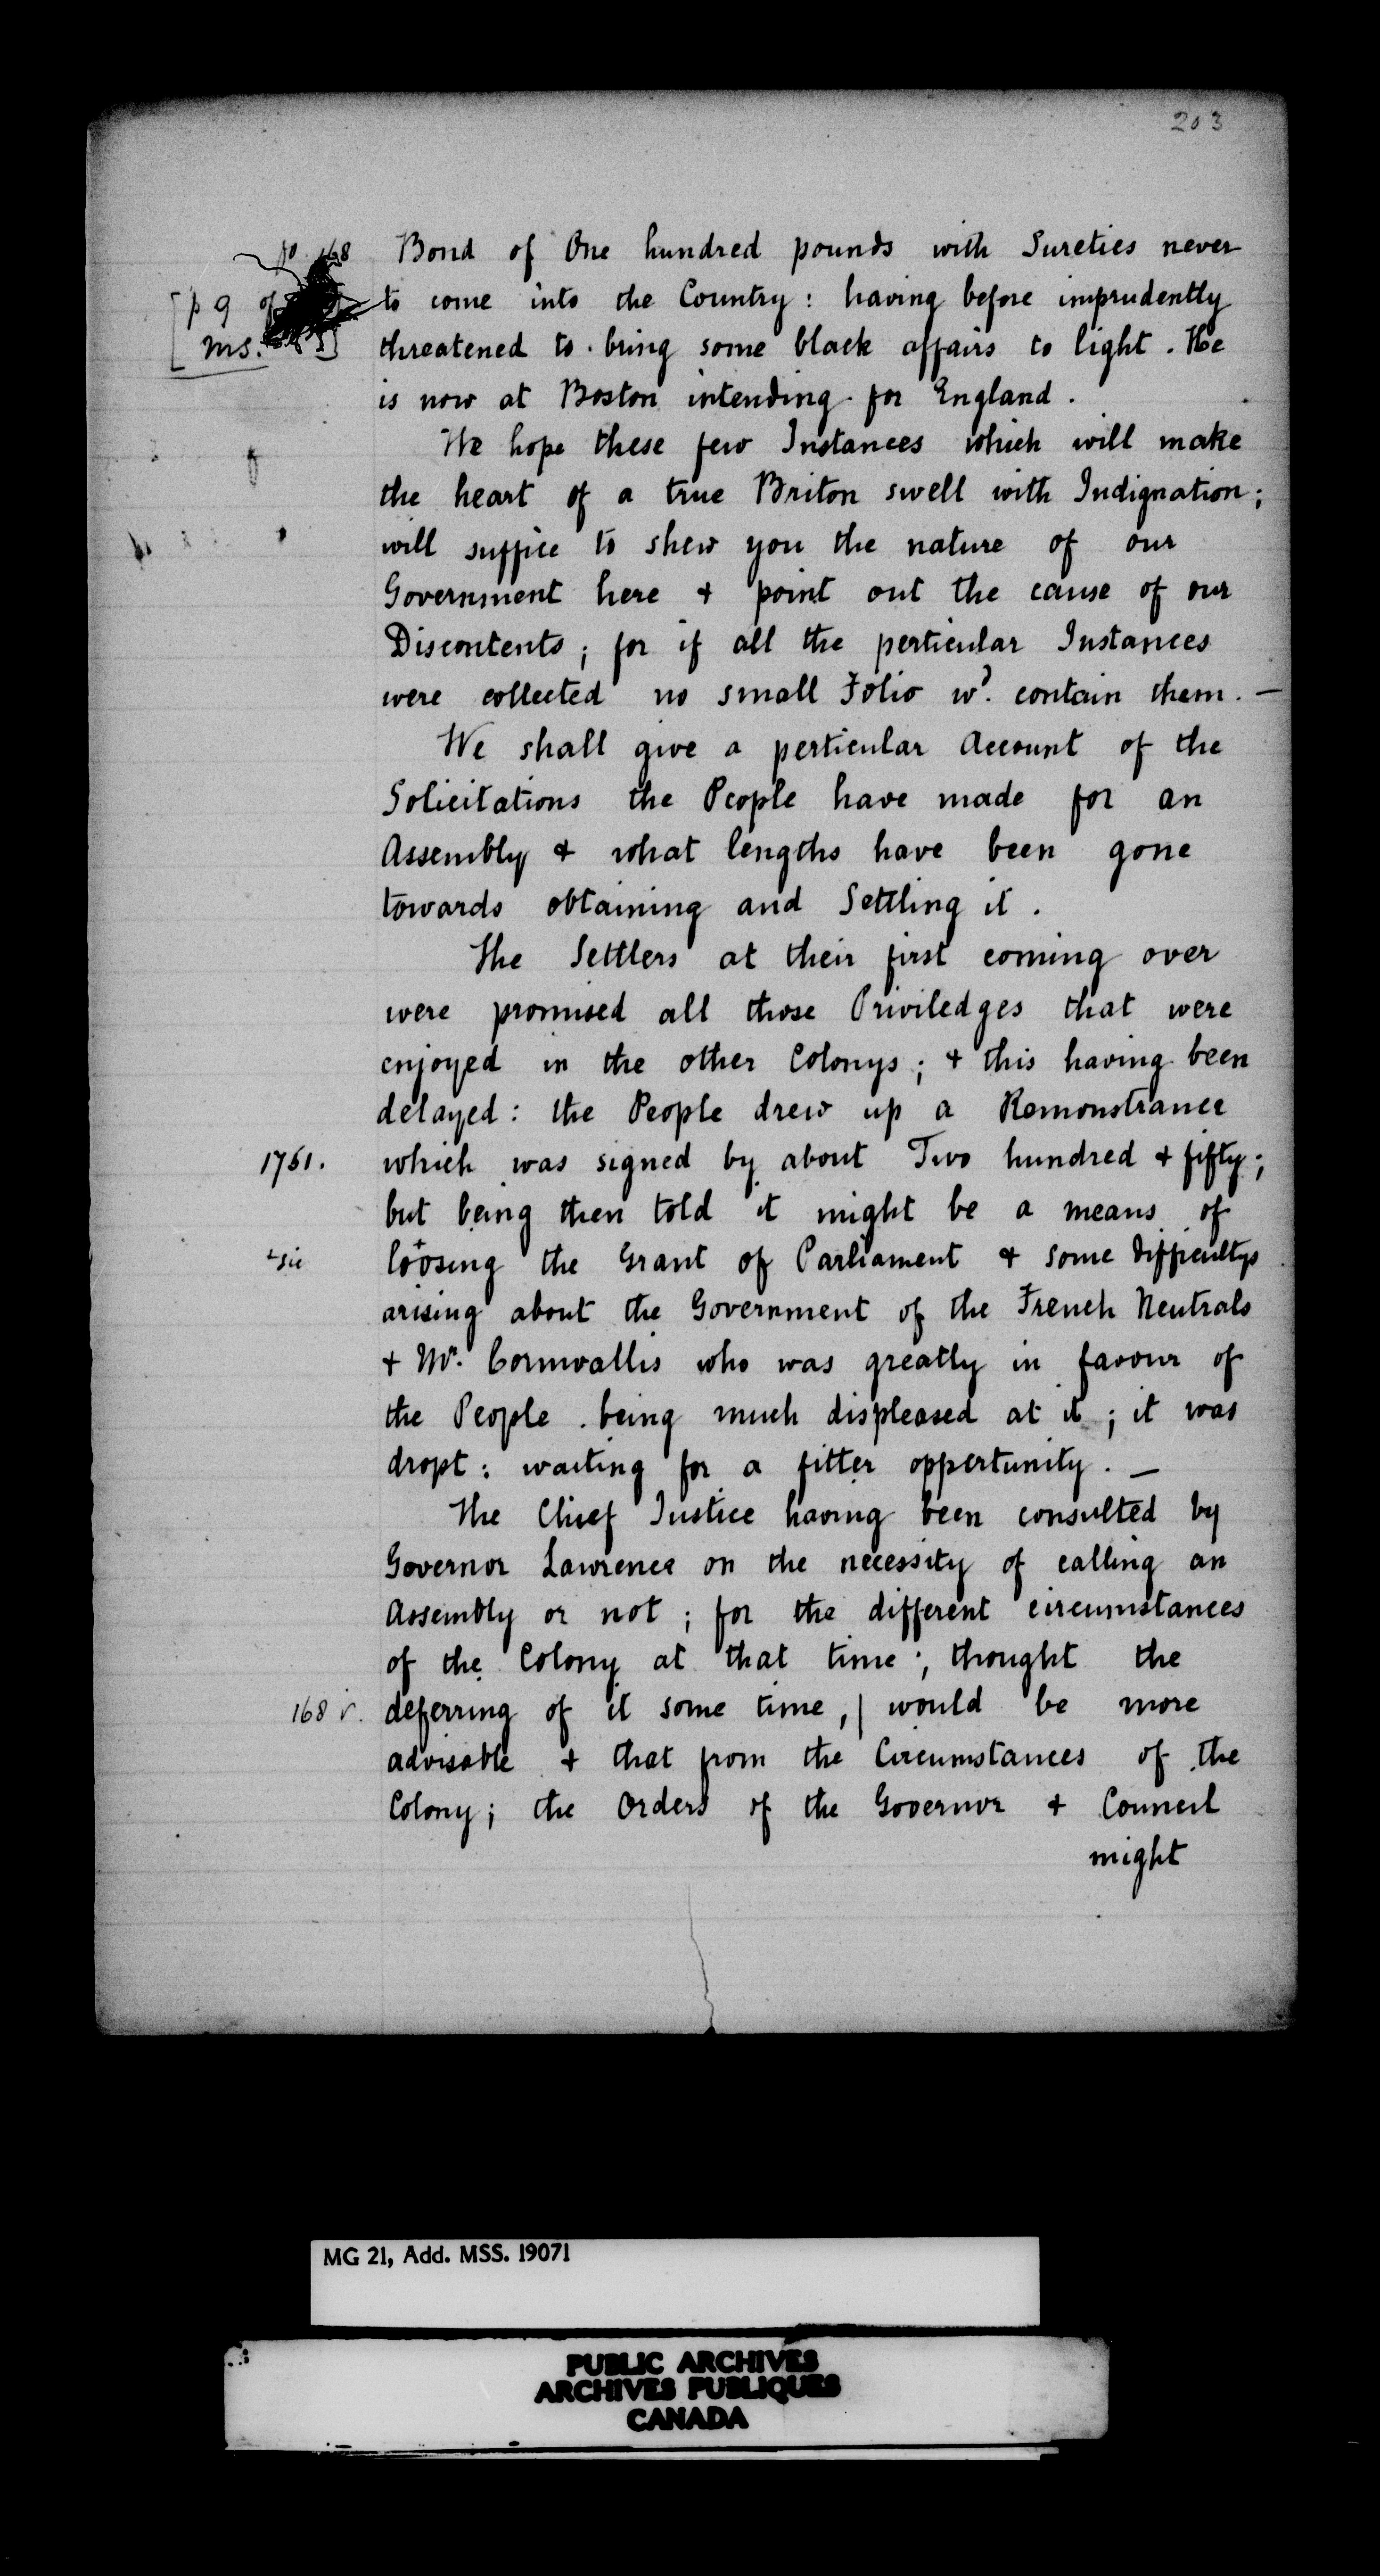 203
fo 168 Bond of One hundred pounds with Sureties never
[p 9 of to come into the Country : having before imprudently
ms.] threatened to bring some black affairs to light . He
is now at Boston intending for England .
We hope these few Instances which will make
the heart of a true Briton swell with Indignation ;
will suffice to shew you the nature of our
Government here & point out the cause of our
Discontents ; for if all the perticular Instances
were collected no small Folio wd. contain them . —
We shall give a perticular Account of the
Solicitations the People have made for an
Assembly & what lengths have been gone
towards obtaining and Settling it .
The Settlers at their first coming over
were promised all those Priviledges that were
enjoyed in the other Colonys ; & this having been
delayed : the People drew up a Remonstrance
1751. which was signed by about Two hundred & fifty ;
but being then told it might be a means of
+sic loosing the Grant of Parliament & some difficultys
arising about the Government of the French Neutrals
& Mr. Cornwallis who was greatly in favour of
the People being much displeased at it ; it was
dropt : waiting for a fitter oppertunity . —
The Chief Justice having been consulted by
Governor Lawrence on the necessity of calling an
Assembly or not ; for the different circumstances
of the Colony at that time ; thought the
168 v. deferring of it some time , | would be more
advisable & that from the Circumstances of the
Colony ; the Orders of the Governor & Council
might
MG 21, Add. MSS. 19071
PUBLIC ARCHIVES
ARCHIVES PUBLIQUES
CANADA